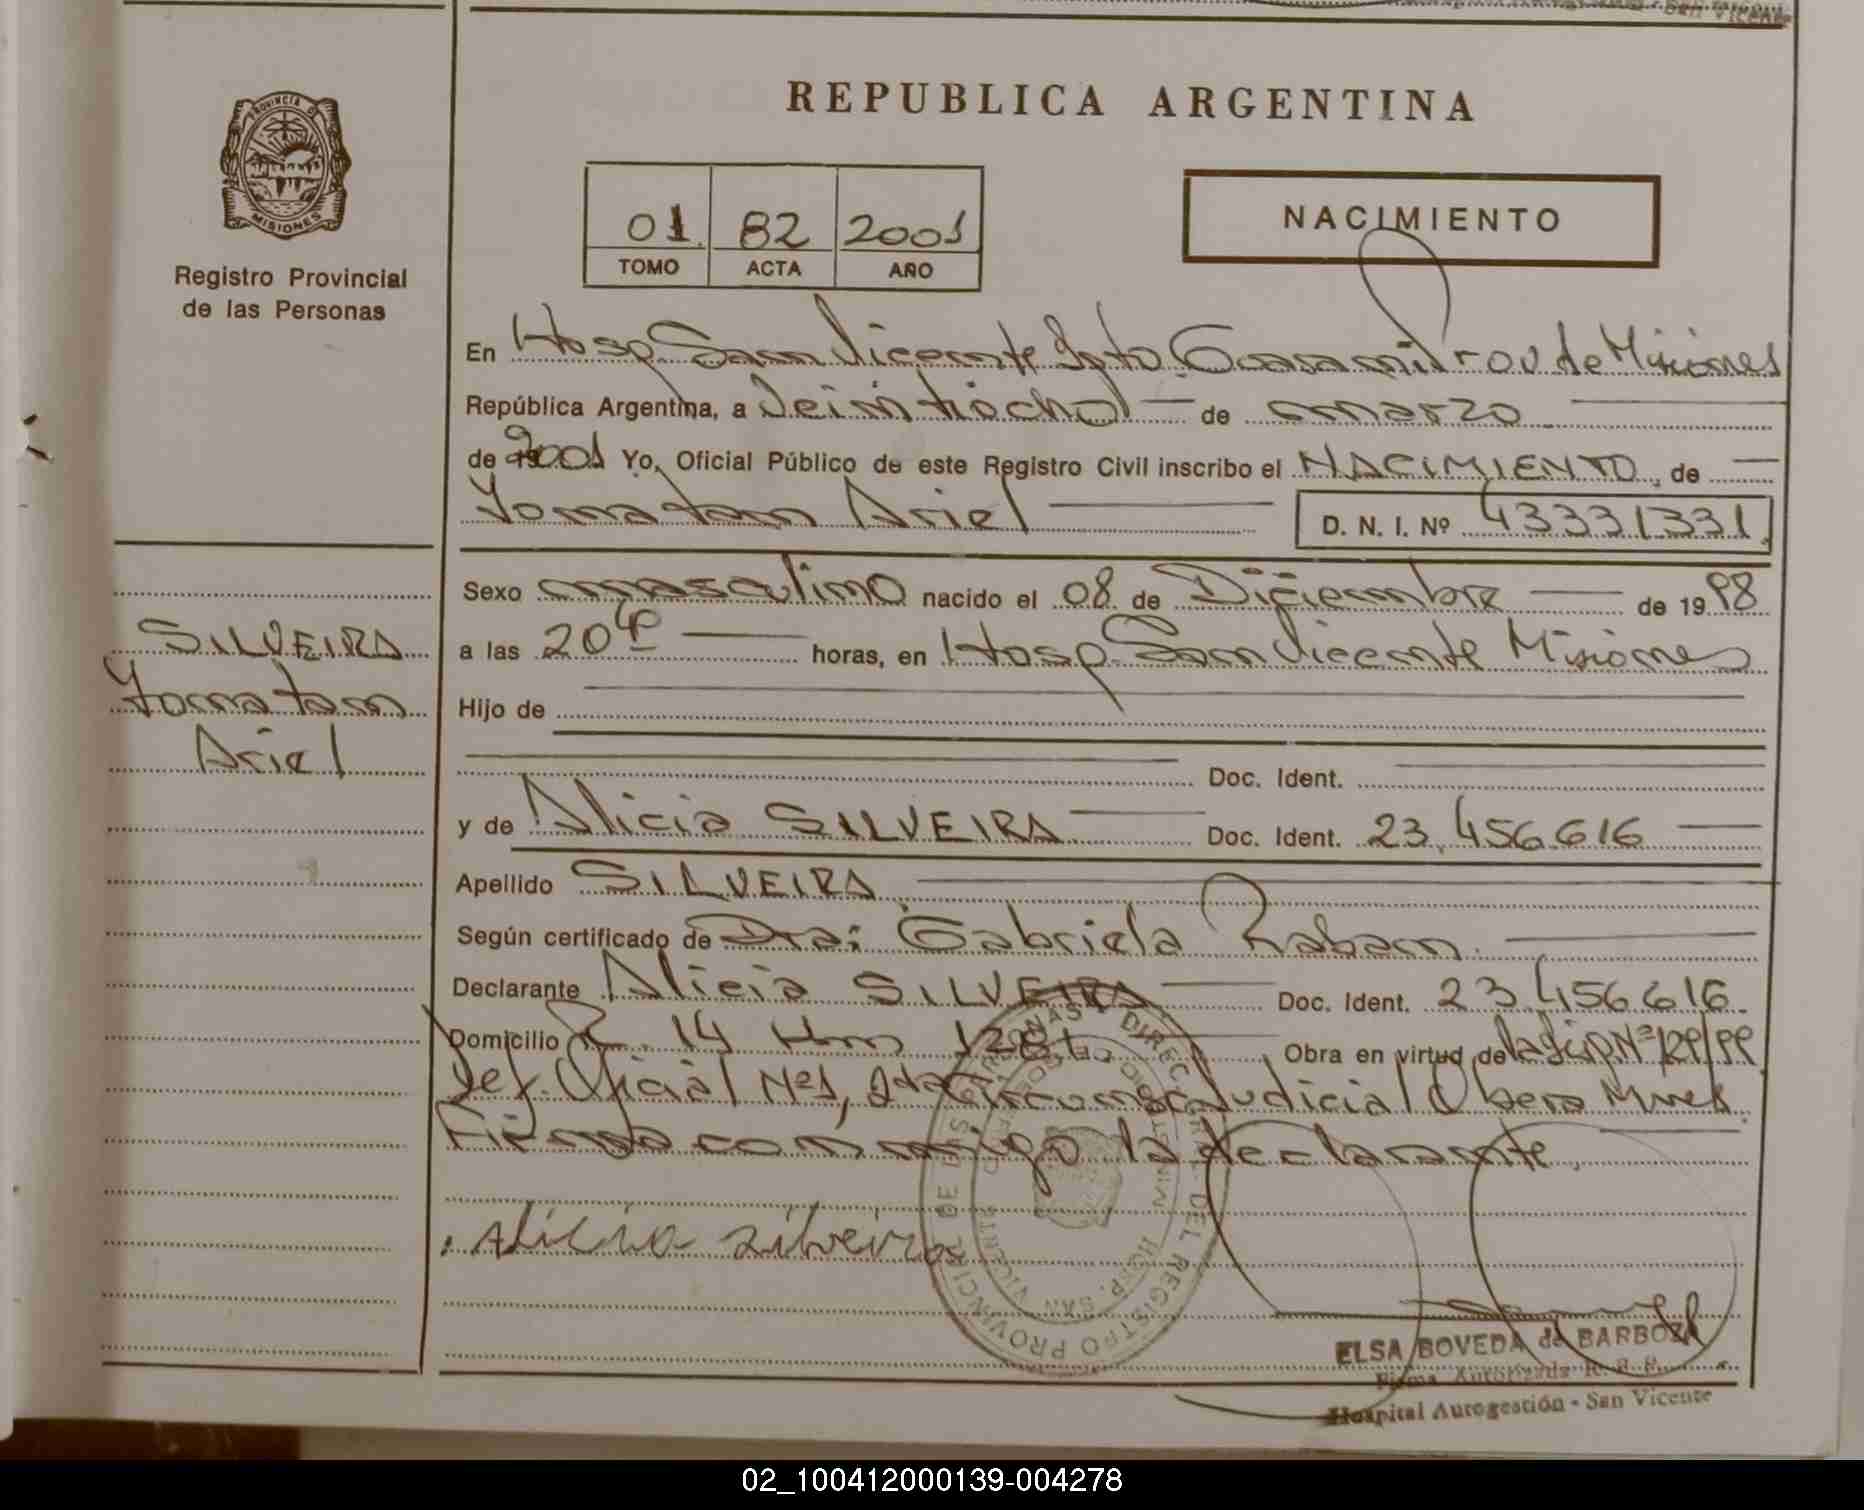 San Vicente
PROVINCIA DE
MISIONES
Registro Provincial
de las Personas
REPUBLICA ARGENTINA
01 82 2001
TOMO ACTA AÑO
NACIMIENTO
En Hosp San Vicente Dpto. Guaraní Prov de Misiones
República Argentina, a Veintiocho de marzo
de 2001 Yo, Oficial Público de este Registro Civil inscribo el NACIMIENTO, de
Yonatan Ariel D. N. I. Nº 43331331
Sexo masculino nacido el 08 de Diciembre de 1998
a las 20 horas, en Hosp. San Vicente Misiones
Hijo de
Doc. Ident.
y de Alicia SILVEIRA Doc. Ident. 23.456.616
Apellido SILVEIRA
Según certificado de Dra: Gabriela Raban.
Declarante Alicia SILVEIRA Doc. Ident. 23.456.616
Domicilio R. 14 Km 1281 Obra en virtud de Nº 129/99
Def. Oficial Nº1, 2da Circunsc. Judicial Obera Mnes.
Firma conmigo la declarante.
Alicia Silveira
SILVEIRA
Yonatan
Ariel
DIREC. GRAL. DEL REGISTRO PROVINCIAL DE LAS PERSONAS
HOSP. SAN VICENTE
ELSA BOVEDA de BARBOZA
Firma Autorizada R. P. P.
Hospital Autogestión - San Vicente
02_100412000139-004278